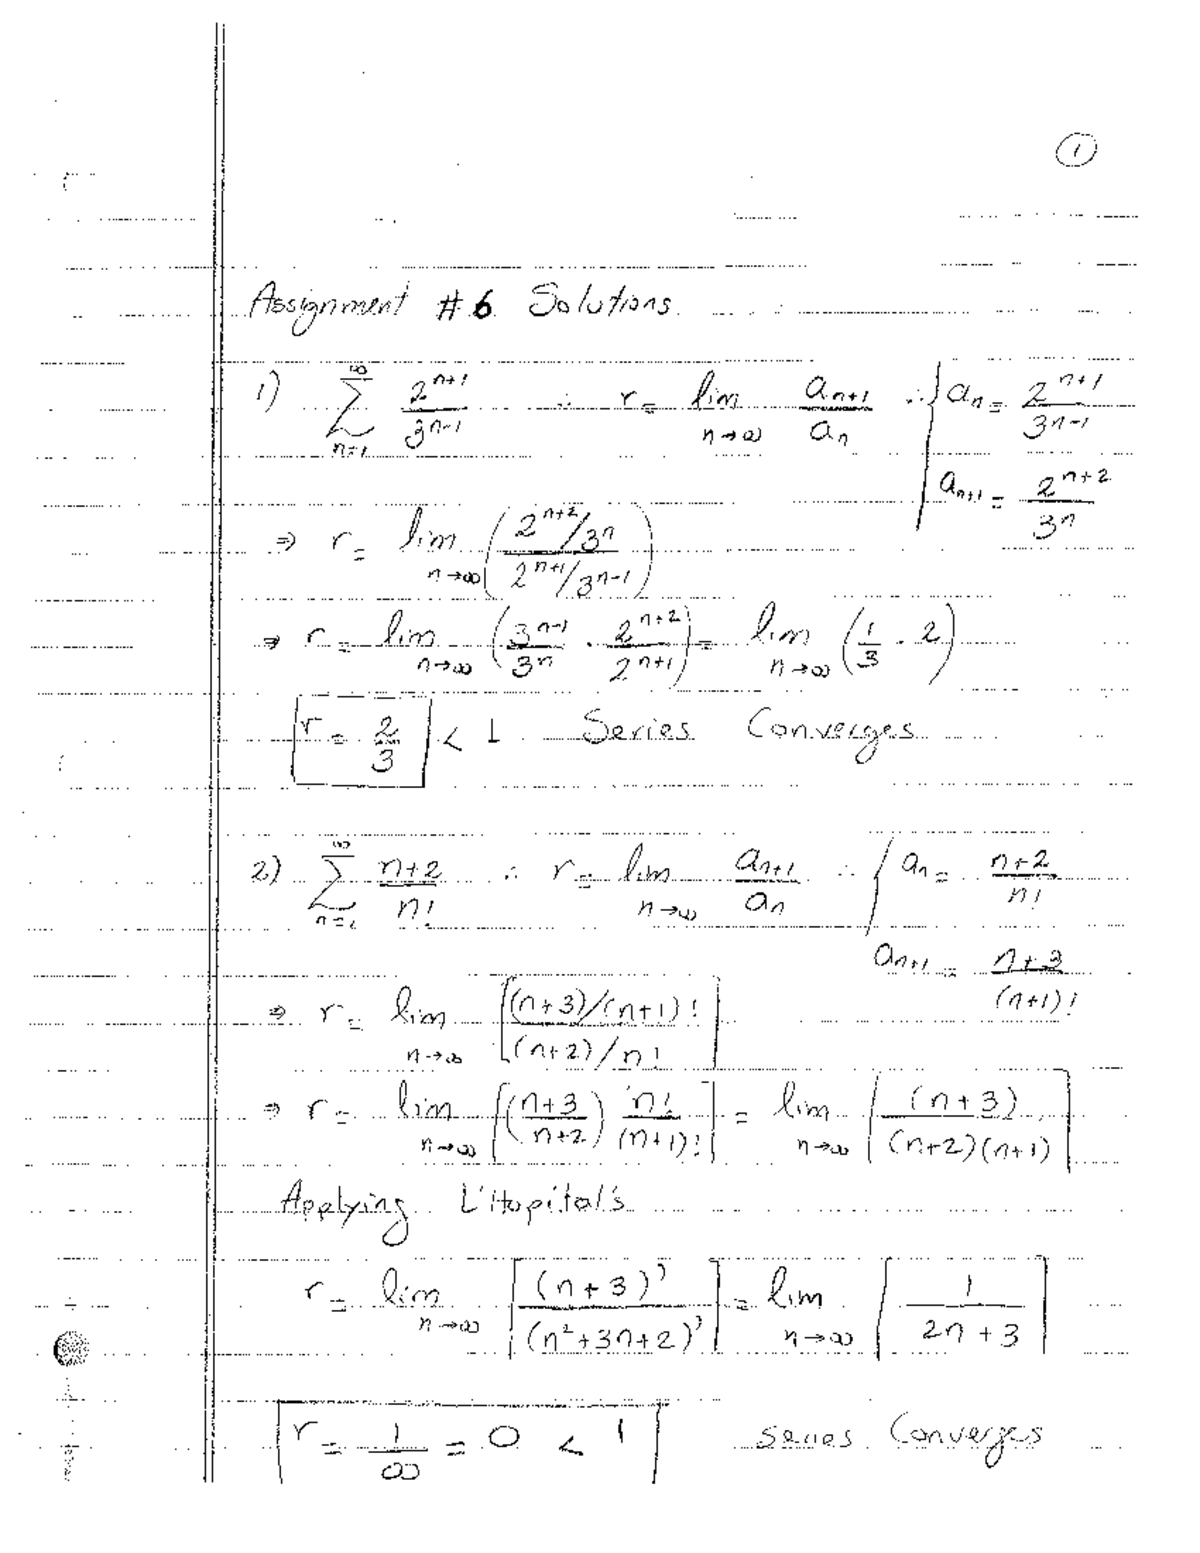 1
Assignment #6 Solutions
1) ∑_{n=1}^{∞} 2^{n+1}/3^{n-1} ∴ r = lim_{n→∞} a_{n+1}/a_n ∴ { a_n = 2^{n+1}/3^{n-1}
a_{n+1} = 2^{n+2}/3^n
⇒ r = lim_{n→∞} ( (2^{n+2}/3^n) / (2^{n+1}/3^{n-1}) )
⇒ r = lim_{n→∞} ( 3^{n-1}/3^n · 2^{n+2}/2^{n+1} ) = lim_{n→∞} ( 1/3 · 2 )
r = 2/3 < 1 Series Converges
2) ∑_{n=1}^{∞} (n+2)/n! ∴ r = lim_{n→∞} a_{n+1}/a_n ∴ { a_n = (n+2)/n!
a_{n+1} = (n+3)/(n+1)!
⇒ r = lim_{n→∞} [ ((n+3)/(n+1)!) / ((n+2)/n!) ]
⇒ r = lim_{n→∞} [ ((n+3)/(n+2)) n!/(n+1)! ] = lim_{n→∞} [ (n+3)/((n+2)(n+1)) ]
Applying L'Hopital's
r = lim_{n→∞} [ (n+3)'/(n²+3n+2)' ] = lim_{n→∞} [ 1/(2n+3) ]
r = 1/∞ = 0 < 1 Series Converges